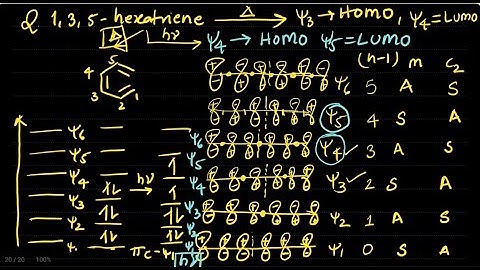 Q 1, 3, 5 - hexatriene Δ → Ψ3 → HOMO, Ψ4 = LUMO
Δ hν → Ψ4 → HOMO Ψ5 = LUMO
(n-1) m C2
5
4
3
2
1
Ψ6 5 A S
Ψ5 4 S A
Ψ4 ✓ 3 A S
Ψ3 ✓ 2 S A
Ψ2 1 A S
Ψ1 0 S A
Ψ6
Ψ5
Ψ4
Ψ3
Ψ2
hν
Ψ6
Ψ5
Ψ4
Ψ3
Ψ2
hν
20 / 20 100%